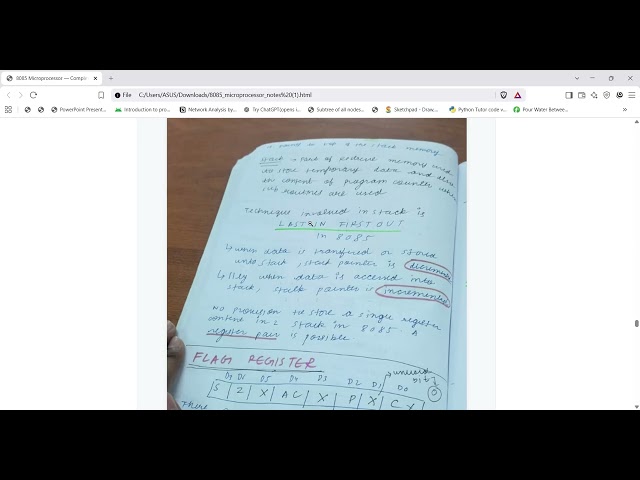 8085 Microprocessor — Compl
File C:/Users/ASUS/Downloads/8085_microprocessor_notes%20(1).html
PowerPoint Present...
Introduction to pro...
Network Analysis by...
Try ChatGPT(opens i...
Subtree of all nodes...
Sketchpad - Draw,...
Python Tutor code v...
Pour Water Betwee...
stack memory
stack → Part of memory used
to store temporary data and also
content of program counter when
sub routines are used
Technique involved in stack is
LAST IN FIRST OUT
in 8085
↳ when data is transferred or stored
into stack, stack pointer is decremente
↳ llly when data is accessed into
stack, pointer is incremented
No provision to store a single register
content in stack in 8085. A
register pair is possible
FLAG REGISTER
D7 D6 D5 D4 D3 D2 D1 D0
S | Z | X | AC | X | P | X | CY
There